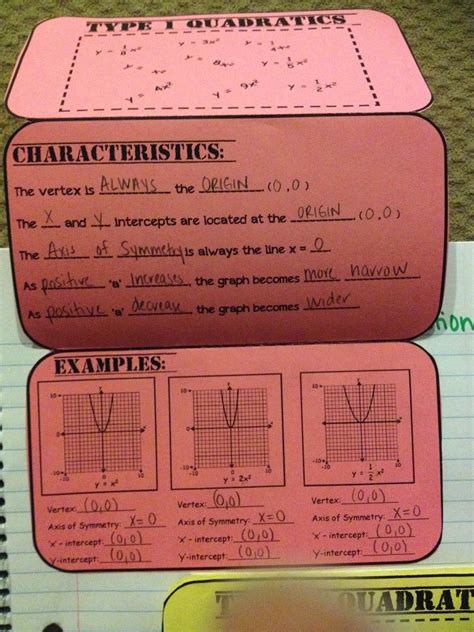 TYPE 1 QUADRATICS
y = 1/8 x² y = 3x² y = 1/4 x²
y = x² y = 8x² y = 1/5 x²
y = 4x² y = 9x² y = 1/2 x²
CHARACTERISTICS:
The vertex is ALWAYS the ORIGIN (0,0)
The X and Y intercepts are located at the ORIGIN (0,0)
The Axis of Symmetry is always the line x = 0
As positive 'a' Increases, the graph becomes more narrow
As positive 'a' decrease, the graph becomes wider
tion
EXAMPLES:
y = x² y = 2x² y = 1/2 x²
Vertex: (0,0) Vertex: (0,0) Vertex: (0,0)
Axis of Symmetry: X=0 Axis of Symmetry: X=0 Axis of Symmetry: X=0
'x' - intercept: (0,0) 'x' - intercept: (0,0) 'x' - intercept: (0,0)
'Y'-intercept: (0,0) 'Y'-intercept: (0,0) 'Y'-intercept: (0,0)
QUADRAT